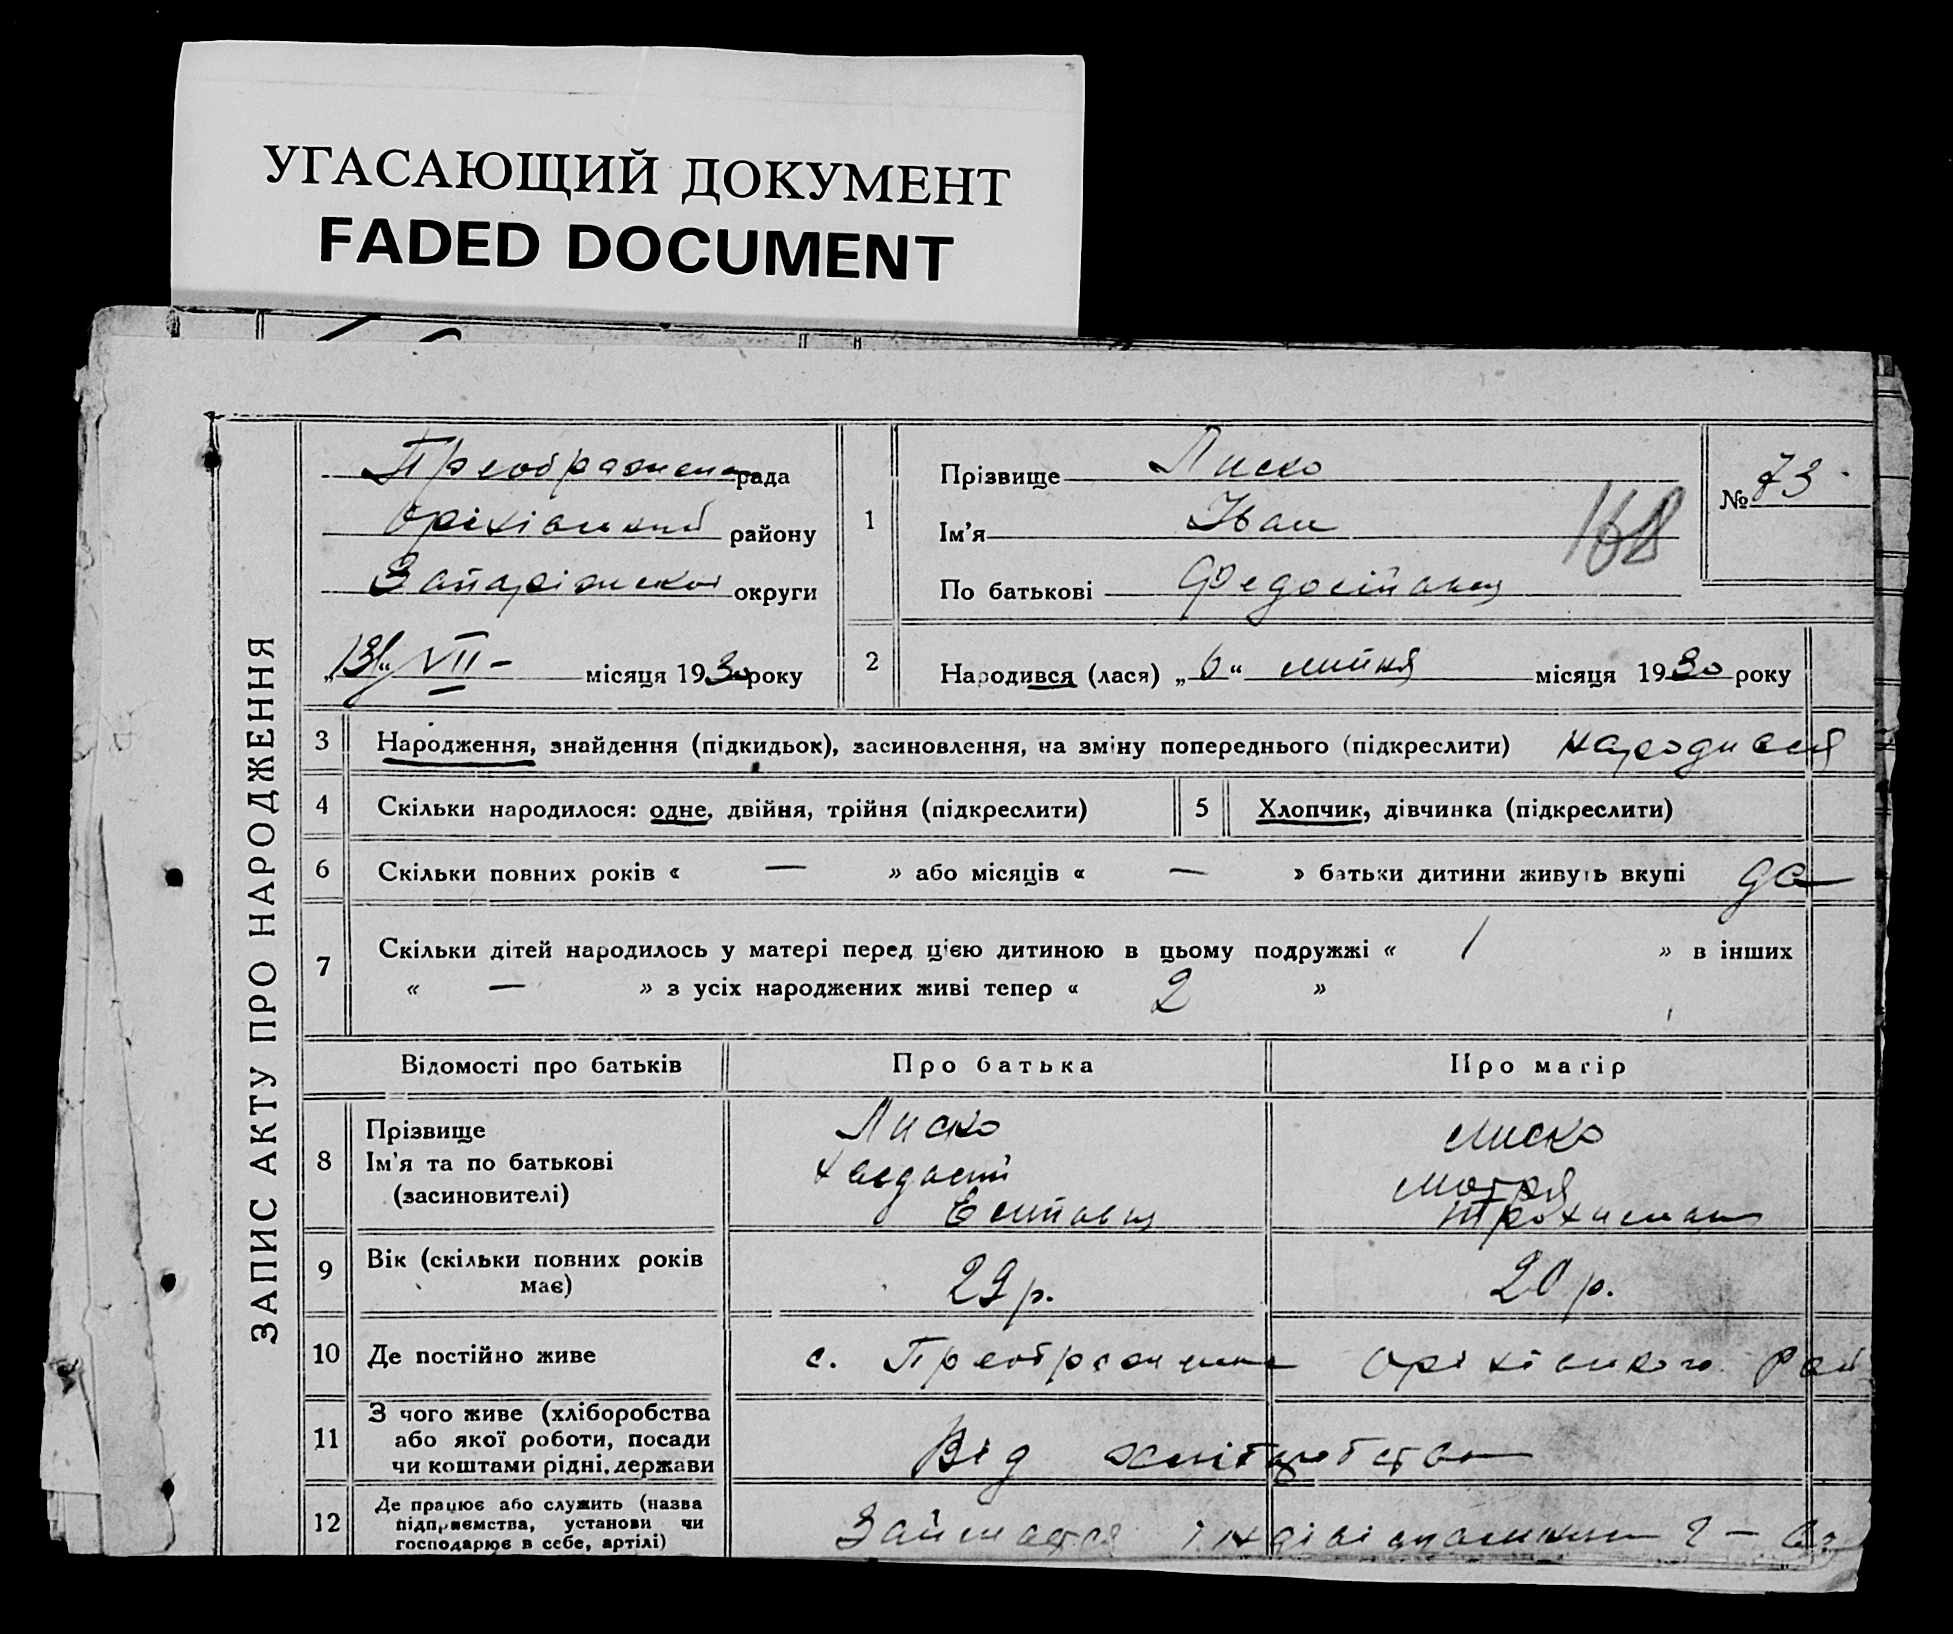 УГАСАЮЩИЙ ДОКУМЕНТ
FADED DOCUMENT
ЗАПИС АКТУ ПРО НАРОДЖЕННЯ
рада
Оріхівський району
Запаріжської округи
„13“ VII – місяця 1930 року
1
Прізвище Лиско
Ім'я Іван
По батькові
168
№ 73
2
Народився (лася) „6“ липня місяця 1930 року
3 Народження, знайдення (підкидьок), засиновлення, на зміну попереднього (підкреслити) народився
4 Скільки народилося: одне, двійня, трійня (підкреслити) 5 Хлопчик, дівчинка (підкреслити)
6 Скільки повних років « — » або місяців « — » батьки дитини живуть вкупі да
7 Скільки дітей народилось у матері перед цією дитиною в цьому подружжі « 1 » в інших
« — » з усіх народжених живі тепер « 2 »
Відомості про батьків Про батька Про матір
8 Прізвище Лиско Лиско
Ім'я та по батькові Мотря
(засиновителі)
9 Вік (скільки повних років має) 29 р. 20 р.
10 Де постійно живе с. Оріхівского Рай
11 З чого живе (хліборобства
або якої роботи, посади
чи коштами рідні, держави Від хліборобства
12 Де працює або служить (назва
підприємства, установи чи
господарює в себе, артілі)